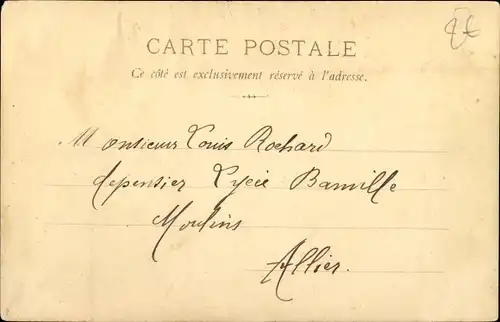 CARTE POSTALE
Ce côté est exclusivement réservé à l'adresse.
Monsieur Louis Rochard
depensier Lycée Banville
Moulins
Allier.